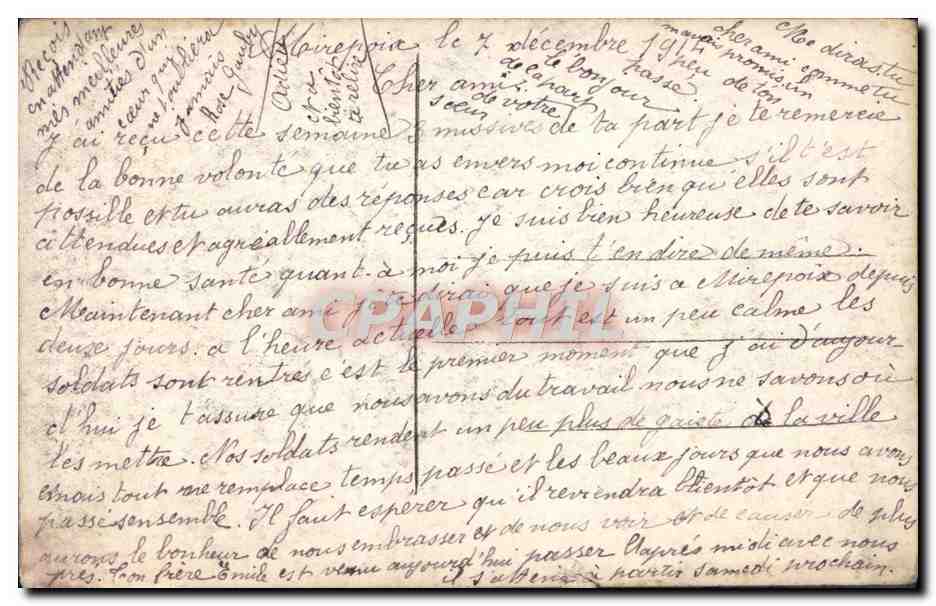 Mirepoix le 7 décembre 1914
Cher ami
J'ai reçu cette semaine 3 missives de ta part je te remercie
de la bonne volonté que tu as envers moi continue s'il t'est
possible et tu auras des réponses car crois bien qu'elles sont
attendues et agréablement reçues. Je suis bien heureuse de te savoir
en bonne santé quant à moi je puis t'en dire de même.
Maintenant cher ami je te dirai que je suis à Mirepoix depuis
deux jours. à l'heure actuelle tout est un peu calme les
soldats sont rentrés c'est le premier moment que j'ai d'aujour-
d'hui je t'assure que nous avons du travail nous ne savons où
les mettre. Nos soldats rendent un peu plus de gaieté à la ville
mais tout ne remplace temps passé et les beaux jours que nous avons
passé sensemble. Il faut espérer qu'il reviendra bientôt et que nous
aurons le bonheur de nous embrasser et de nous voir et de causer de plus
près. Ton frère Emile est venu aujourd'hui passer l'après midi avec nous
il s'attend à partir samedi prochain.
Me diras-tu
cher ami comme tu
m'avais promis un
peu de ton
passé.
le bonjour
de la part
de votre
sœur
Adieu
et à
bientôt
te lire
Reçois
en attendant
mes meilleures
amitiés d'un
cœur qui
ne t'oubliera
jamais
Rose
CPAPHIL